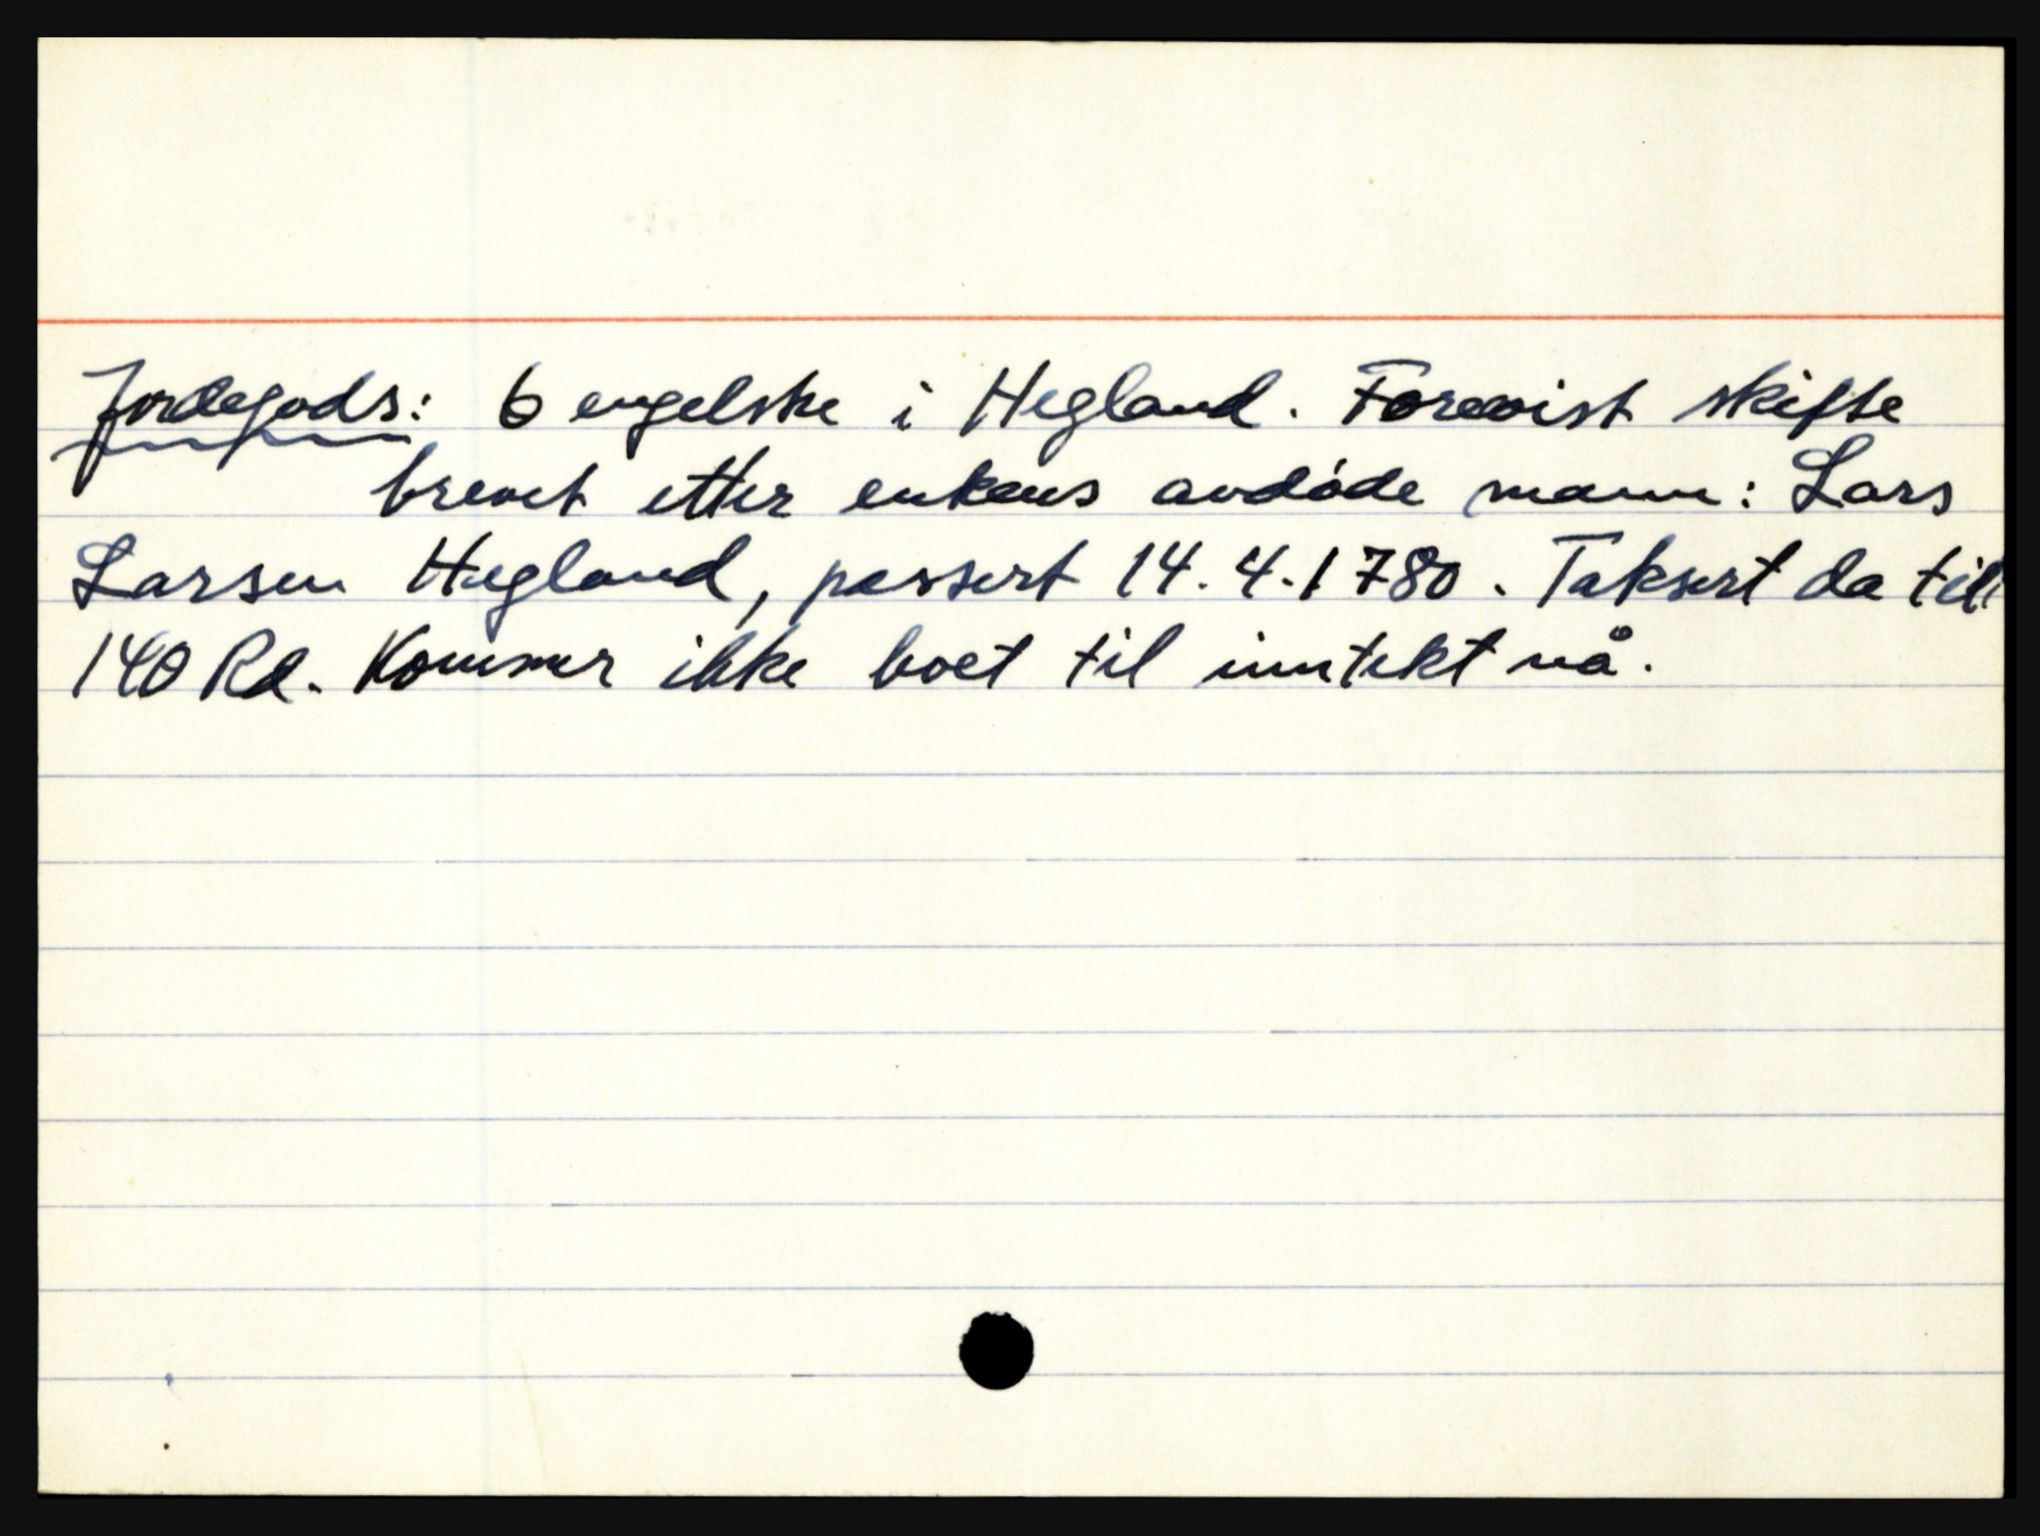 Jordegods: 6 engelske i Hegland. Forevist skifte
brevet etter enkens avdøde mann: Lars
Larsen Hegland, passert 14.4.1780. Taksert da til
140 Rd. Kommer ikke boet til inntekt nå.